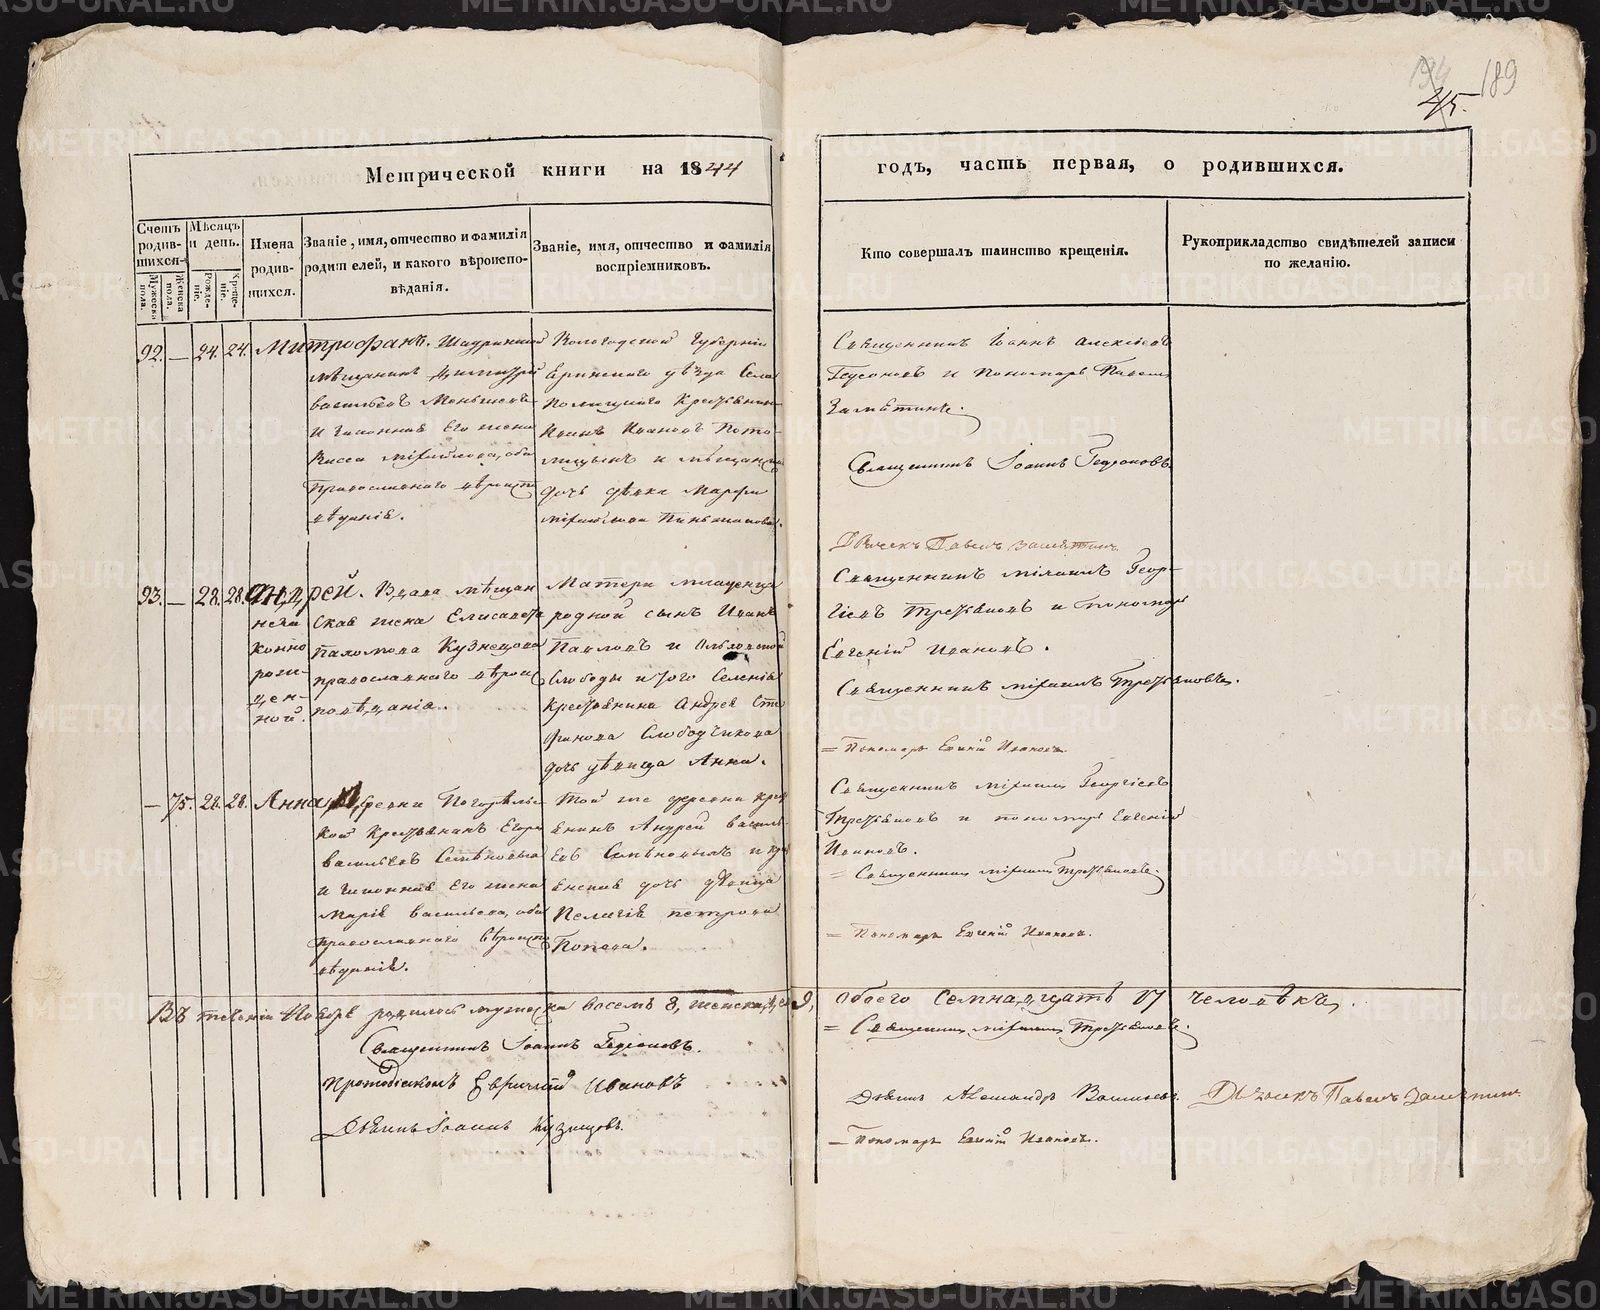 189
45.
Метрической книги на 1844
годъ, часть первая, о родившихся.
Счетъ родив-шихся.
Мужеска пола.
Женска пола.
Мѣсяцъ и день.
Рожде-нiе.
Креще-нiе.
Имена родив-шихся.
Званіе, имя, отчество и фамилія
родителей, и какого вѣроиспо-
вѣданія.
Званіе, имя, отчество и фамилія
воспріемниковъ.
Кто совершалъ таинство крещенія.
Рукоприкладство свидѣтелей записи
по желанію.
92. — 24. 24. Митрофанъ.
мѣщанинъ Димитрій
Васильевъ Меньшевъ
и законная его жена
православнаго вѣроиспо
вѣданія.
Вологодской Губерніи
уѣзда Села
Крестьянинъ
Иванъ Ивановъ
и мѣщанска
дочь дѣвка Марфа
Священникъ Іоаннъ Алексѣевъ
Гедеоновъ и Пономарь Павелъ
Замятинъ.
Священникъ Іоаннъ Гедеоновъ
Дьячекъ Павелъ Замятинъ
93. — 28. 28. Андрей.
незаконнорожденной.
Вдова мѣщан
ская жена Елисавета
Пахомова Кузнецова
православнаго вѣроис
повѣданія.
Матери младенца
родной сынъ Иванъ
Павловъ и
Слободы и того Селенія
Крестьянина Андрея Сте
фанова Слободчикова
дочь дѣвица Анна.
Священникъ Михаилъ Геор-
гіевъ Третьяковъ и пономарь
Евгеній Ивановъ.
Священникъ Михаилъ Третьяковъ.
= Пономарь Евгеній Ивановъ
— 75. 28. 28. Анна
Деревни
кой Крестьянинъ Егоръ
Васильевъ
и законная его жена
Марія Васильева, оба
православнаго вѣроиспо
вѣданія.
Той же деревни крес
янинъ Андрей Василь
евъ и крес
янская дочь дѣвица
Пелагія Петрова
Попова.
Священникъ Михаилъ Георгіевъ
Третьяковъ и пономарь Евгеній
Ивановъ.
= Священникъ Михаилъ Третьяковъ.
= Пономарь Евгеній Ивановъ.
Въ теченіи Ноября родилось мужеска восемь 8, женска 9, обоего семнадцать 17 человѣкъ.
= Священникъ Михаилъ Третьяковъ.
Священникъ Іоаннъ Гедеоновъ.
Протодіаконъ Ивановъ
Діаконъ Іоаннъ Кузнецовъ.
Діаконъ Александръ
Дьячекъ Павелъ Замятинъ
— Пономарь Евгеній Ивановъ.
METRIKI.GASO-URAL.RU